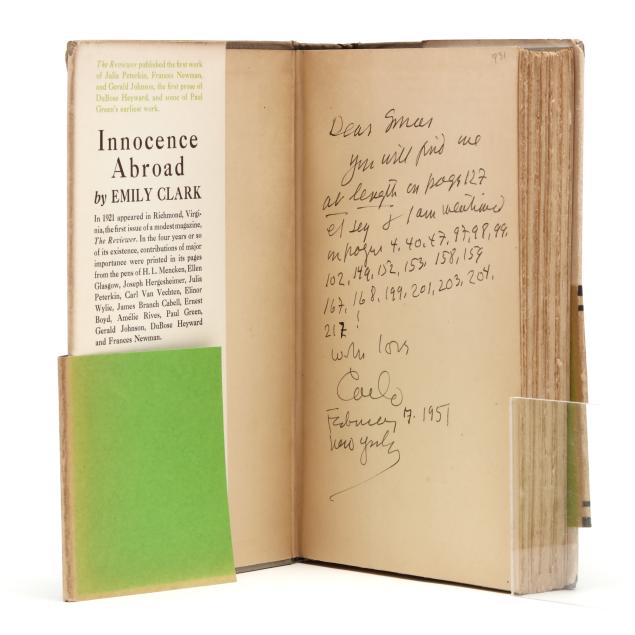 The Reviewer published the first work
of Julia Peterkin, Frances Newman,
and Gerald Johnson, the first prose of
DuBose Heyward, and some of Paul
Green's earliest work.
Innocence
Abroad
by EMILY CLARK
In 1921 appeared in Richmond, Virgi-
nia, the first issue of a modest magazine,
The Reviewer. In the four years or so
of its existence, contributions of major
importance were printed in its pages
from the pens of H. L. Mencken, Ellen
Glasgow, Joseph Hergesheimer, Julia
Peterkin, Carl Van Vechten, Elinor
Wylie, James Branch Cabell, Ernest
Boyd, Amélie Rives, Paul Green,
Gerald Johnson, DuBose Heyward
and Frances Newman.
931
Dear
You will find me
at length on page 127
et seq & I am mentioned
on pages 4, 40, 47, 97, 98, 99,
102, 149, 152, 153, 158, 159
167, 168, 199, 201, 203, 204,
217!
with love
Carlo
February 7. 1951
New York